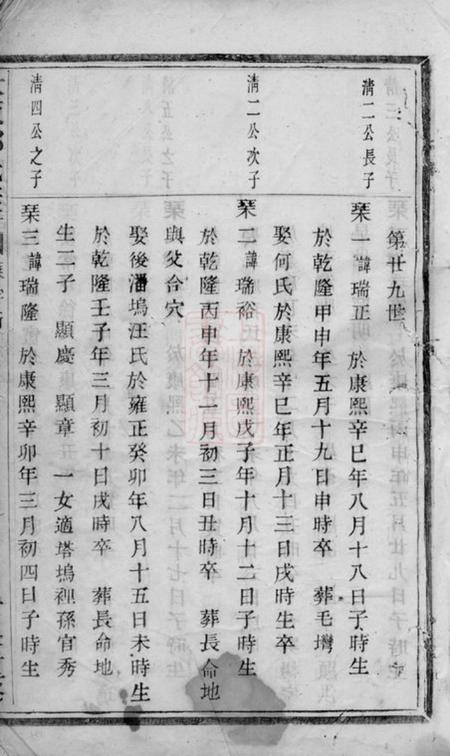 第廿九世
清二公長子
琹一諱瑞正 於康熙辛巳年八月十八日子時生
於乾隆甲申年五月十九日申時卒 葬毛塆
娶何氏於康熙辛巳年正月十三日戌時生卒
清二公次子
琹二諱瑞裕 於康熙戊子年十月十二日子時生
於乾隆丙申年十一月初三日丑時卒 葬長命地
與父合穴
娶後潘塢汪氏於雍正癸卯年八月十五日未時生
於乾隆壬子年三月初十日戌時卒 葬長命地
生二子 顯慶 顯章 一女適塔塢裡孫官秀
清四公之子
琹三諱瑞隆 於康熙辛卯年三月初四日子時生